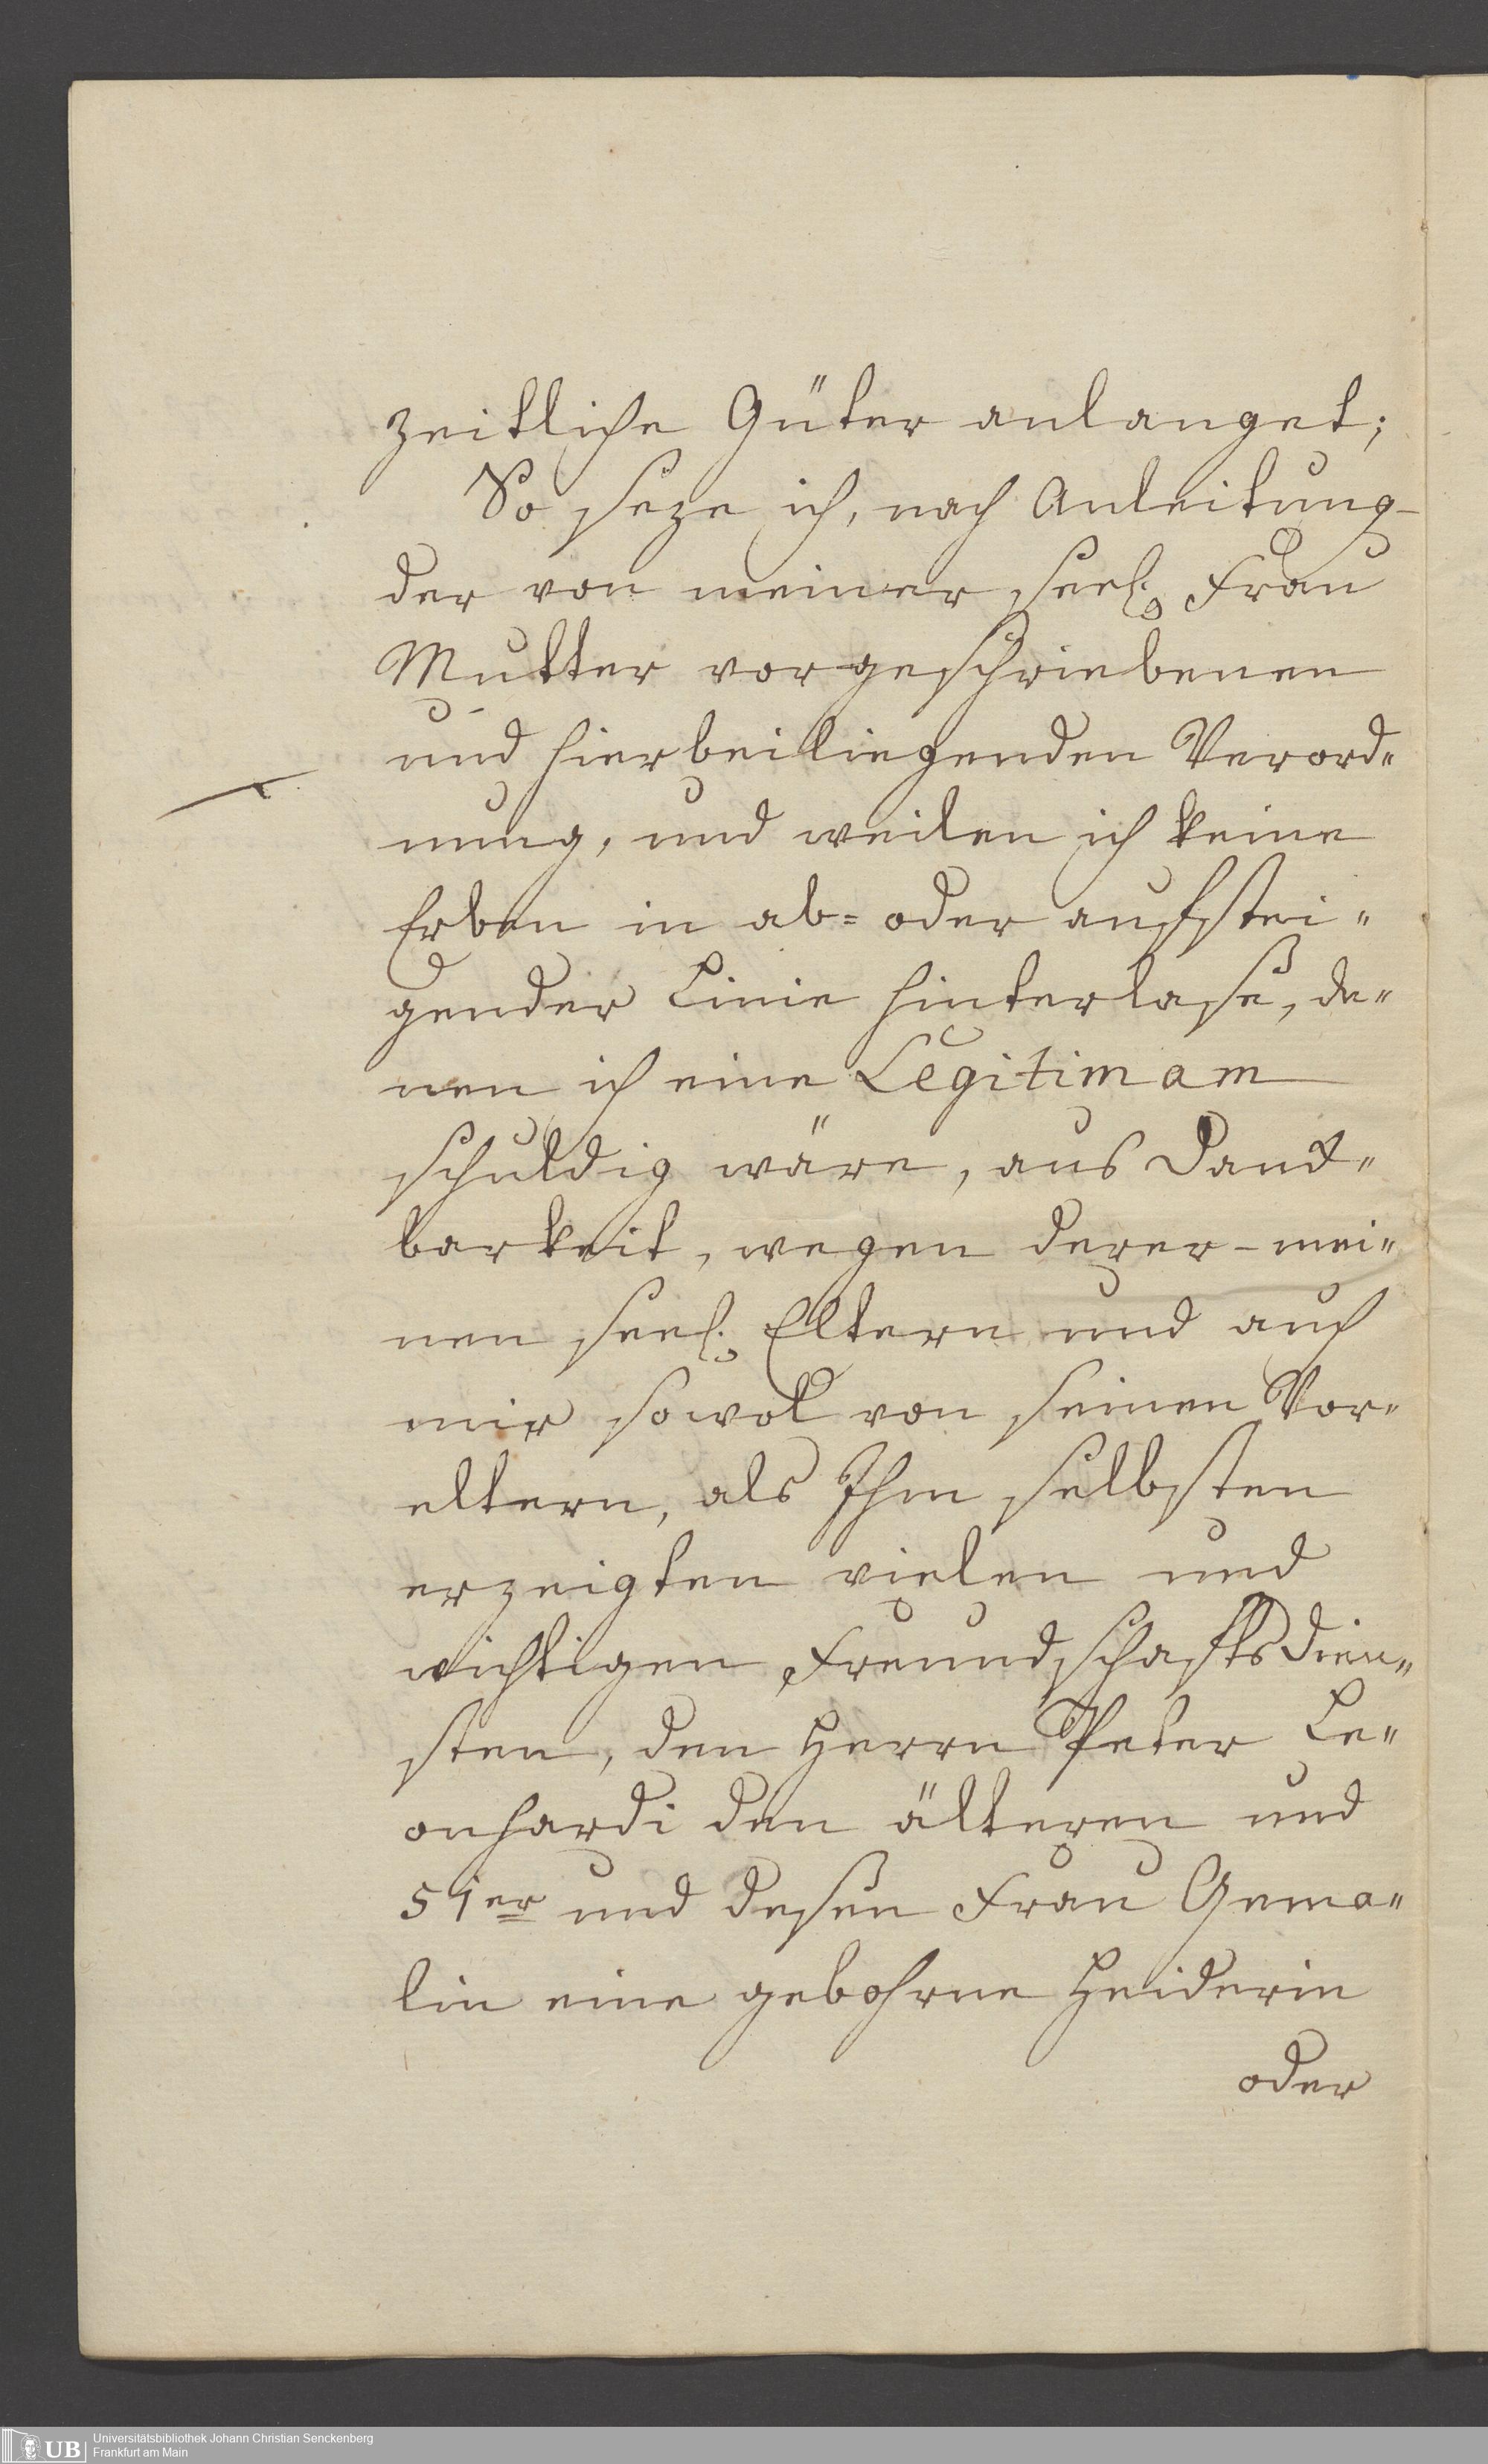 zeitliche Güter anlanget;
So seze ich, nach Anleitung
der von meiner seel. Frau
Mutter vorgeschriebenen
und hierbeiliegenden Verord„
nung, und weilen ich keine
Erben in ab= oder aufstei„
gender Linie hinterlaße, de„
nen ich eine Legitimam
schuldig wäre, aus Dank„
barkeit, wegen derer mei„
nen seel. Eltern und auch
mir sowol von seinen Vor„
eltern, als Ihm selbsten
erzeigten vielen und
wichtigen Freundschaftsdien„
sten, den Herrn Peter Le„
onhardi den älteren und
51er und deßen Frau Gema„
lin eine gebohrne Heiderin
oder
UB
Universitätsbibliothek Johann Christian Senckenberg
Frankfurt am Main